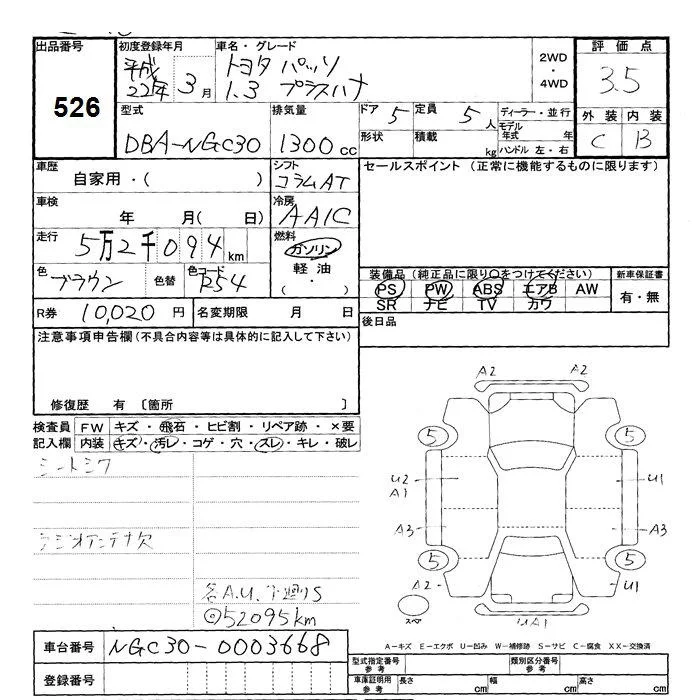 出品番号
526
初度登録年月
平成
22年 3月
車名・グレード
トヨタ パッソ
1.3 プラスハナ
2WD
・
4WD
評価点
3.5
外装 内装
C B
型式
DBA-NGC30
排気量
1300cc
ドア 5
形状
定員 5人
積載 kg
ディーラー・並行
モデル年式 年
ハンドル 左・右
車歴
自家用・( )
シフト
コラムAT
セールスポイント (正常に機能するものに限ります)
車検
年 月( 日)
冷房
AAIC
走行
5万2千094km
燃料
ガソリン
軽油
( ・ )
色
ブラウン
色替
色コード
R54
装備品 (純正品に限り○をつけてください)
PS PW ABS エアB AW
SR ナビ TV カワ
新車保証書
有・無
R券 10,020円
名変期限 月 日
後日品
注意事項申告欄(不具合内容等は具体的に記入して下さい)
修復歴 有 〔箇所 〕
検査員
記入欄
FW キズ・飛石・ヒビ割・リペア跡・×要
内装 キズ・汚レ・コゲ・穴・スレ・キレ・破レ
シートシワ
ラジオアンテナ欠
各A.U.下廻りS
◎52095km
A2 A2
5 5
U2
A1
U1
A3 A3
5 5
A2 U1
スペ
UA1
A-キズ E-エクボ U-凹み W-補修跡 S-サビ C-腐食 XX-交換済
車台番号 NGC30-0003668
登録番号
型式指定番号
参考
類別区分番号
参考
車庫証明用
参考
長さ cm
幅 cm
高さ cm